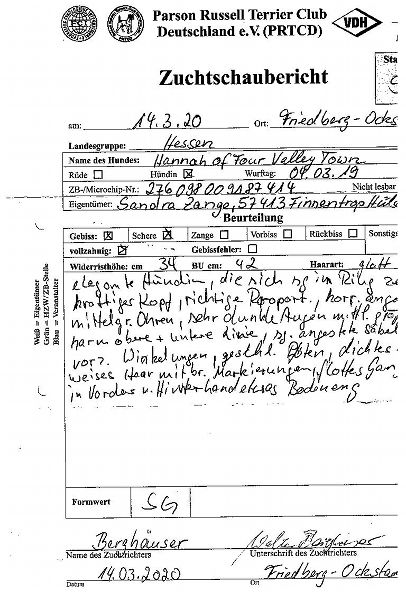 Parson Russell Terrier Club
Deutschland e.V. (PRTCD)
VDH
Zuchtschaubericht
Sta
am: 14.3.20 Ort: Friedberg-Ockst
Landesgruppe: Hessen
Name des Hundes: Hannah of Four Valley Town
Rüde ☐ Hündin ☒ Wurftag: 04.03.19
ZB-/Microchip-Nr.: 276098009187414 Nicht lesbar
Eigentümer: Sandra Zange, 57413 Finnentrop
Beurteilung
Gebiss: ☒ Schere ☒ Zange ☐ Vorbiss ☐ Rückbiss ☐ Sonstigs
vollzahnig: ☒ Gebissfehler: ☐
Widerristhöhe: cm 34 BU cm: 42 Haarart: glatt
elegante Hündin, die sich sg im Ring
kräftiger Kopf, richtige Proport., korr.
mittelgr. Ohren, sehr dunkle Augen
harm. obere + untere Linie, sg.
vorz. Winkelungen, geschl. Pfoten, dichtes
weises Haar mit br. Markierungen, flottes Gan
in Vorder u. Hinterhand etwas Bodeneng
Weiß = Eigentümer
Grün = HZW/ZB-Stelle
Blau = Veranstalter
Formwert SG
Berghäuser
Name des Zuchtrichters Unterschrift des Zuchtrichters
14.03.2020 Friedberg-Ockstam
Datum Ort